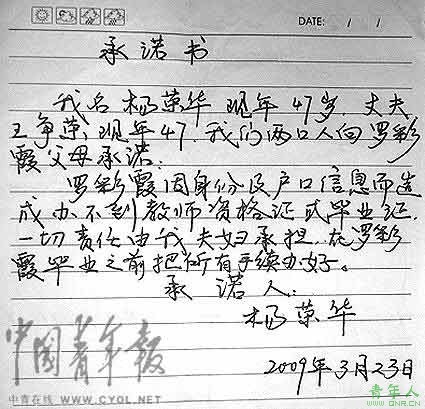 DATE: / /
承诺书
我名杨荣华 现年47岁，丈夫
王争荣，现年47，我们两口人向罗彩
霞父母承诺：
罗彩霞因身份及户口信息而造
成办不到教师资格证或毕业证，
一切责任由我夫妇承担，在罗彩
霞毕业之前把所有手续办好。
承诺人：
杨荣华
2009年3月23日
中国青年报
中青在线 WWW.CYOL.NET
青年人
WWW.QNR.CN